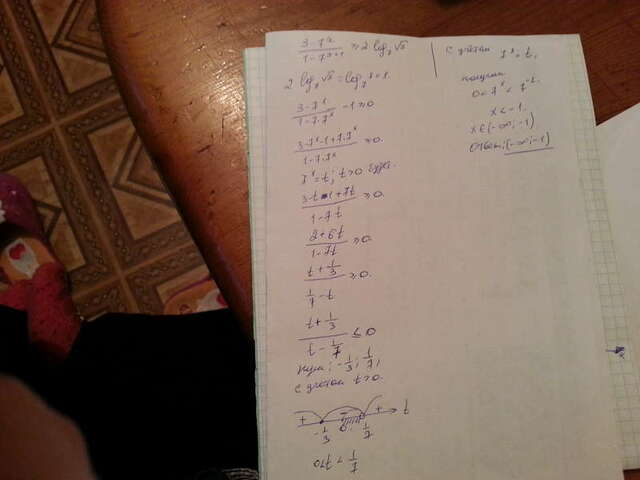 3-7^x / 1-7^{x+1} ≥ 2 log_7 √7
2 log_7 √7 = log_7 7 = 1.
3-7^x / 1-7·7^x - 1 ≥ 0
3-7^x-1+7·7^x / 1-7·7^x ≥ 0.
7^x = t; t>0
3-t-1+7t / 1-7t ≥ 0.
2+6t / 1-7t ≥ 0.
t+1/3 / 1/7-t ≥ 0.
t+1/3 / t-1/7 ≤ 0
нули: -1/3; 1/7;
с учётом t>0.
+ - + t
-1/3 0 1/7
0<t<1/7
с учётом 7^x = t,
получим
0<7^x<7^{-1}
x<-1.
x∈(-∞;-1)
Ответ: (-∞;-1)